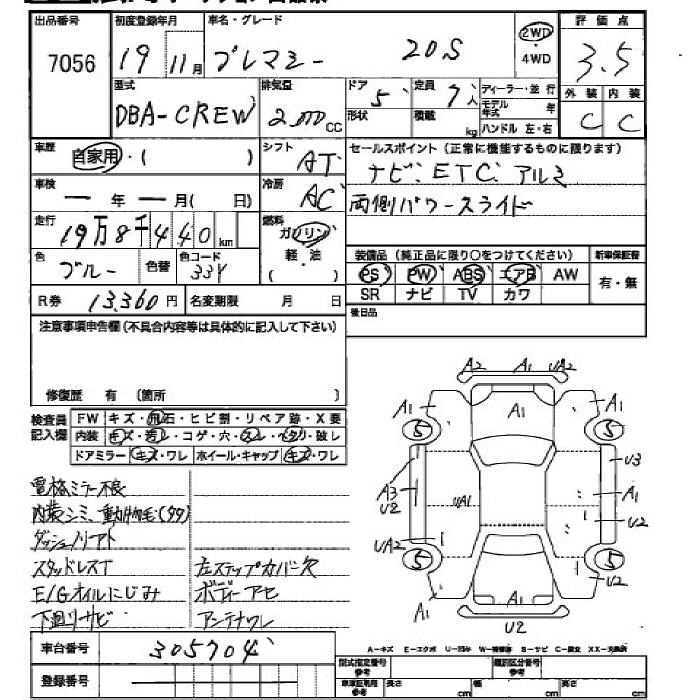 出品番号 初度登録年月 車名・グレード 評価点
7056 19 11月 プレマシー 20S 2WD・4WD 3.5
型式 排気量 ドア 定員 ディーラー・並行 外装 内装
DBA-CREW 2,000cc 5 7人 モデル年式 年 C C
形状 積載 kg ハンドル 左・右
車歴 シフト セールスポイント(正常に機能するものに限ります)
自家用・( ) AT ナビ、ETC、アルミ
車検 冷房 両側パワースライド
ー年ー月( 日) AC
走行 燃料
19万8千440km ガソリン
軽・油
( )
色 色替 色コード 装備品(純正品に限り○をつけてください) 新車保証書
ブルー 33Y PS PW ABS エアB AW 有・無
R券 13,360円 名変期限 月 日 SR ナビ TV カワ
後日品
注意事項申告欄(不具合内容等は具体的に記入して下さい)
修復歴 有 〔箇所 〕
検査員記入欄
FW キズ・飛石・ヒビ割・リペア跡・X要
内装 キズ・汚レ・コゲ・穴・スレ・ヘタリ・破レ
ドアミラー キズ・ワレ ホイール・キャップ キズ・ワレ
電格ミラー不良
内装シミ、動物毛(99)
ダッシュノリアト
スタッドレスT 左ステップカバー欠
E/Gオイルにじみ ボディーアセ
下廻リサビ アンテナワレ
A2 A1 UA2
A1 A1 A1
5 5
U3
A3 UA1 A1
U2 U2
UA2
5 5
U2
A1
U2
A-キズ E-エクボ U-凹み W-補修跡 S-サビ C-腐食 XX-交換済
車台番号 305704
登録番号
型式指定番号 参考 類別区分番号 参考
車庫証明用 参考 長さ cm 幅 cm 高さ cm